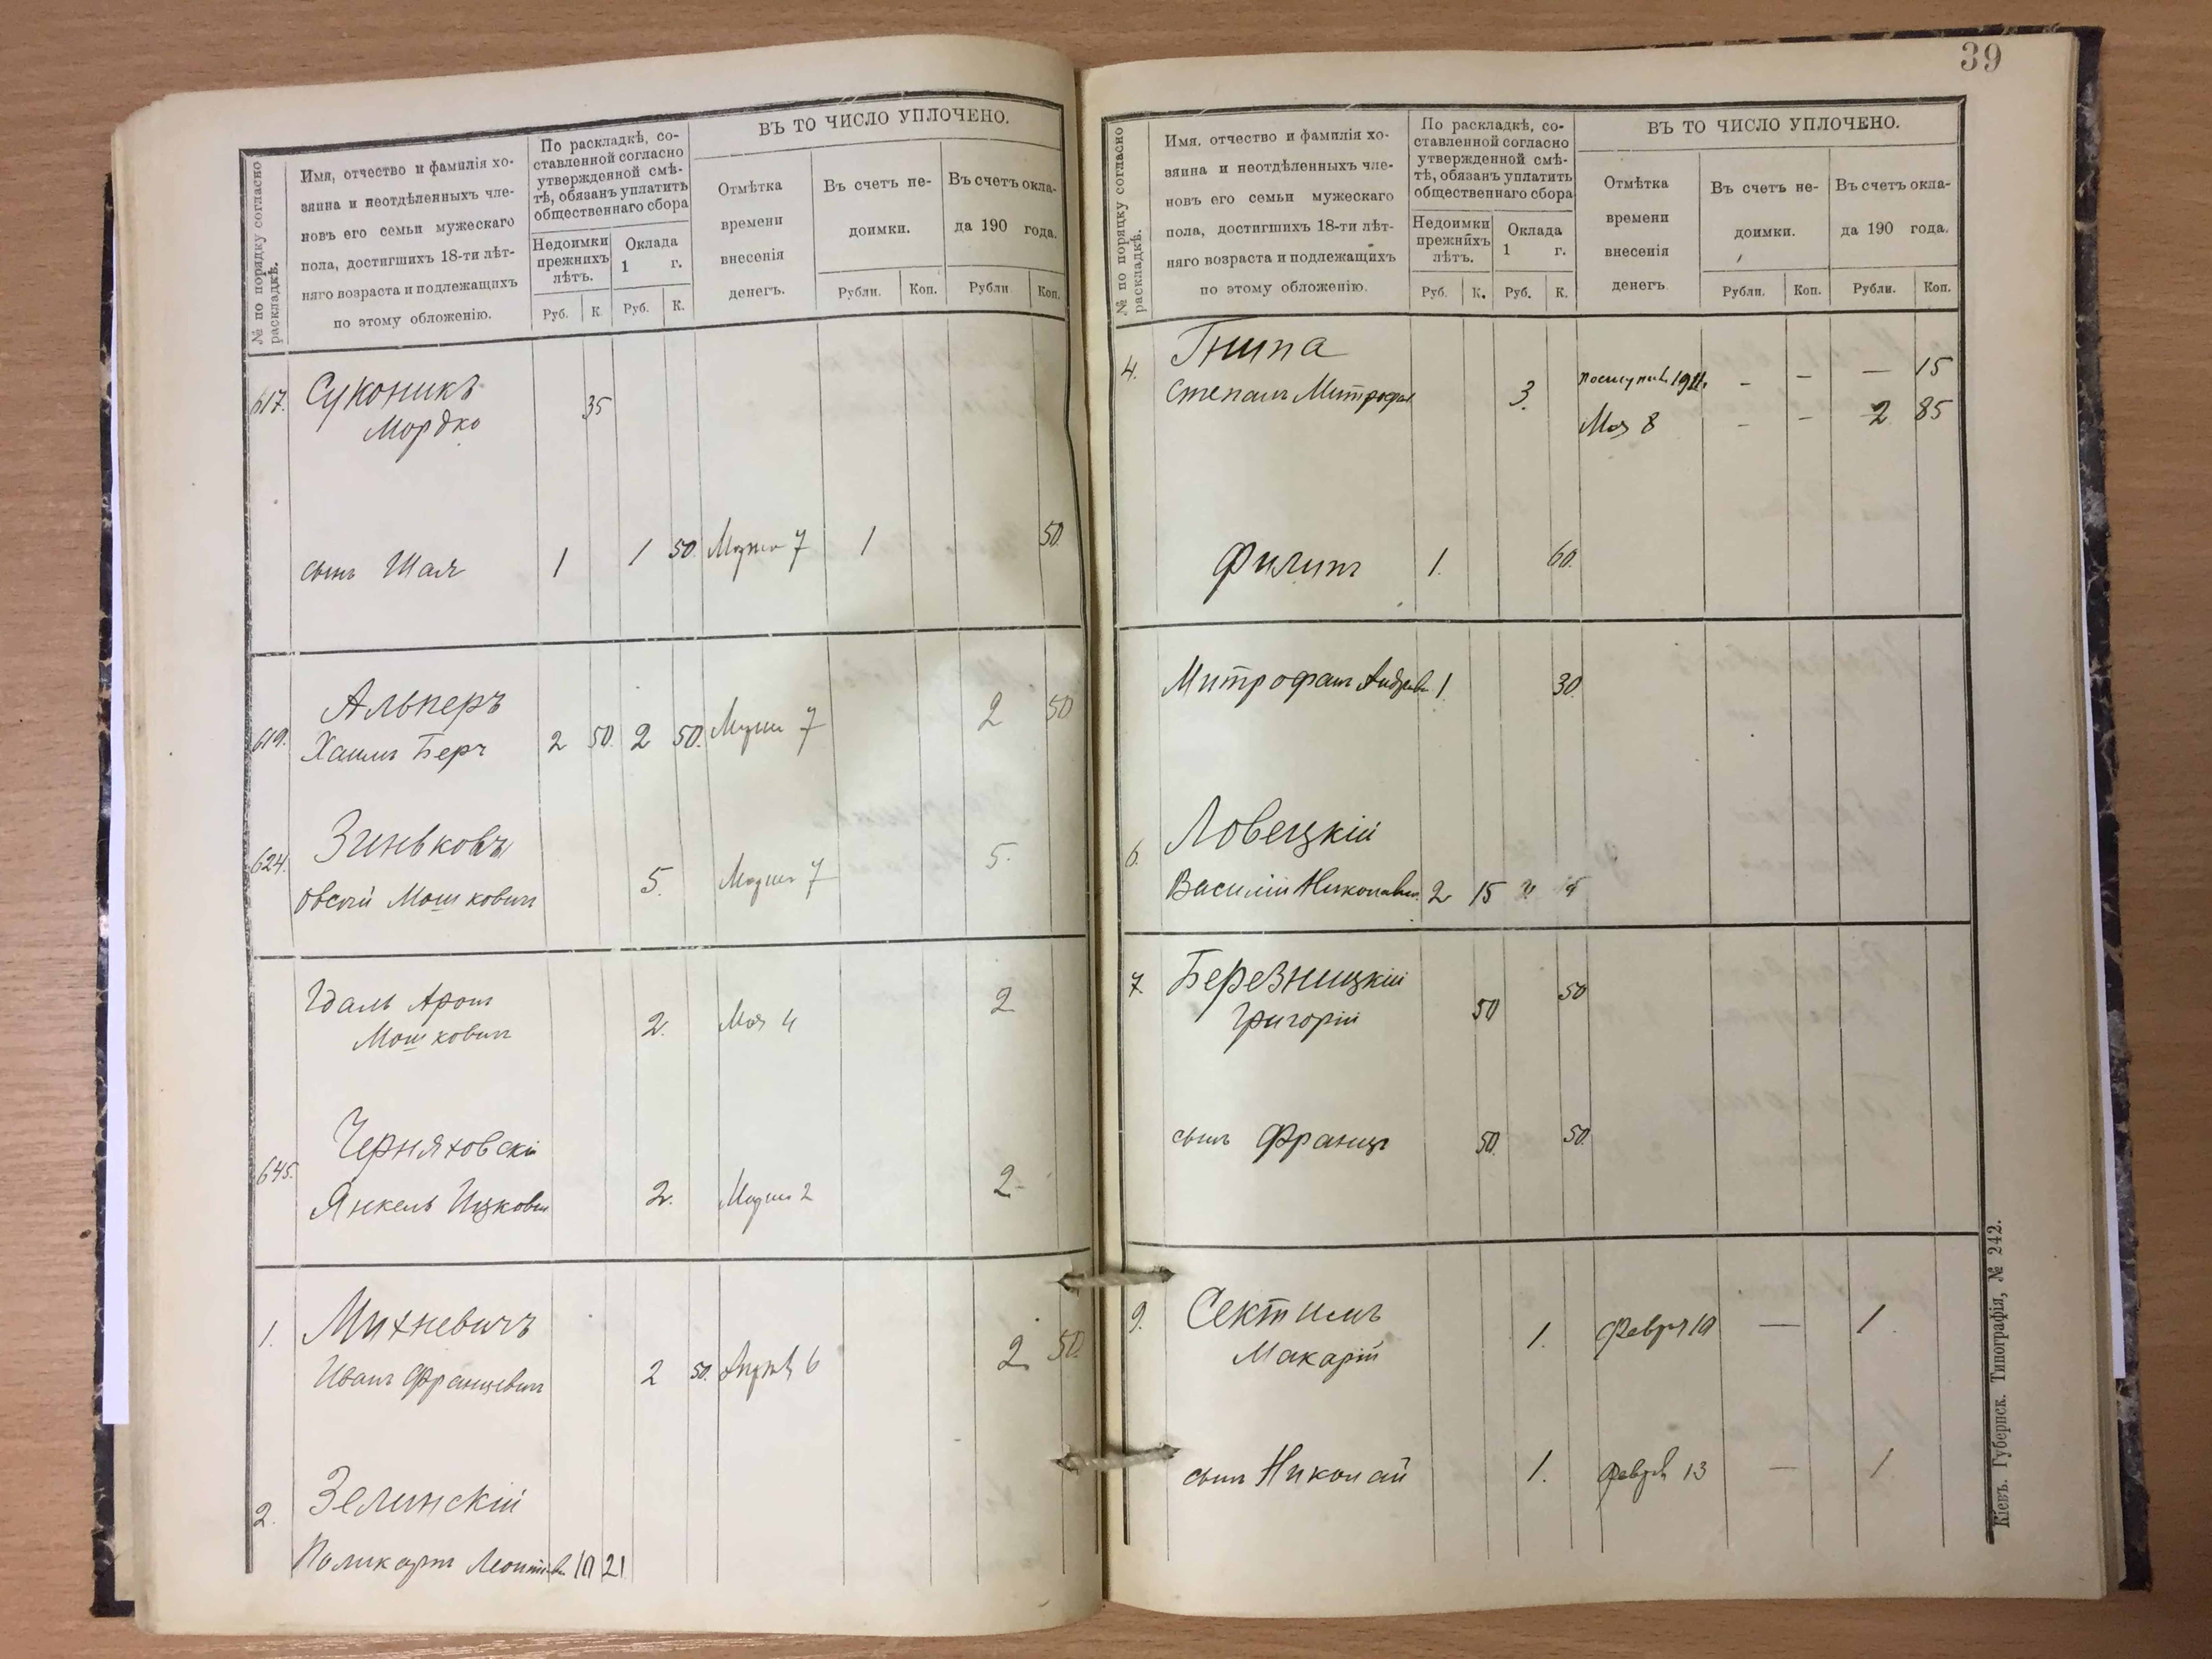 № по порядку согласно
раскладкѣ.
Имя, отчество и фамилія хо-
зяина и неотдѣленныхъ чле-
новъ его семьи мужескаго
пола, достигшихъ 18-ти лѣт-
няго возраста и подлежащихъ
по этому обложенію.
По раскладкѣ, со-
ставленной согласно
утвержденной смѣ-
тѣ, обязанъ уплатить
общественнаго сбора
Недоимки
прежнихъ
лѣтъ.
Оклада
1 г.
Руб. К. Руб. К.
ВЪ ТО ЧИСЛО УПЛОЧЕНО.
Отмѣтка
времени
внесенія
денегъ.
Въ счетъ не-
доимки.
Въ счетъ окла-
да 190 года.
Рубли. Коп. Рубли Коп.
617. Суконикъ
Мордко 35
сынъ Шая 1 1 50 Марта 7 1 50
Альперъ
619. Хаимъ Беръ 2 50. 2 50. Марта 7 2 50
Зиньковъ
624. Овсей Мошковичъ 5. Марта 7 5.
Гдаль Аронъ
Мошковичъ 2. Мая 4 2
Черняховскій
645. Янкель Ицковичъ 2. Марта 2 2
1. Михневичъ
Иванъ Францевичъ 2 50. Апрѣля 6 2 50.
Зелинскій
2.
Поликарпъ 21
39
№ по порядку согласно
раскладкѣ.
Имя, отчество и фамилія хо-
зяина и неотдѣленныхъ чле-
новъ его семьи мужескаго
пола, достигшихъ 18-ти лѣт-
няго возраста и подлежащихъ
по этому обложенію.
По раскладкѣ, со-
ставленной согласно
утвержденной смѣ-
тѣ, обязанъ уплатить
общественнаго сбора
Недоимки
прежнихъ
лѣтъ.
Оклада
1 г.
Руб. К. Руб. К.
ВЪ ТО ЧИСЛО УПЛОЧЕНО.
Отмѣтка
времени
внесенія
денегъ.
Въ счетъ не-
доимки.
Въ счетъ окла-
да 190 года.
Рубли. Коп. Рубли. Коп.
4. Гнипа
Степанъ 3. - - — 15
Мая 8 - - 2 85
Филипъ 1. 60.
Митрофанъ 1 30
6. Ловецкій
Василій 2 15
7. Березницкій 50
Григорій 50
сынъ Францъ 50. 50.
9. Сектимъ
Макарій 1. Февр 19 — 1.
сынъ Николай 1. Февр 13 — 1
Кіевъ. Губернск. Типографія, № 242.